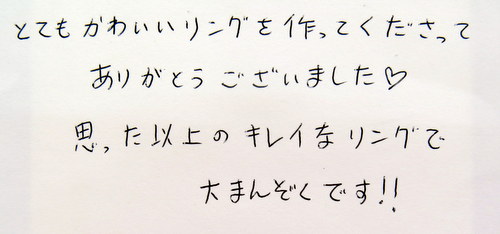 とてもかわいいリングを作ってくださって
ありがとうございました♡
思った以上のキレイなリングで
大まんぞくです!!